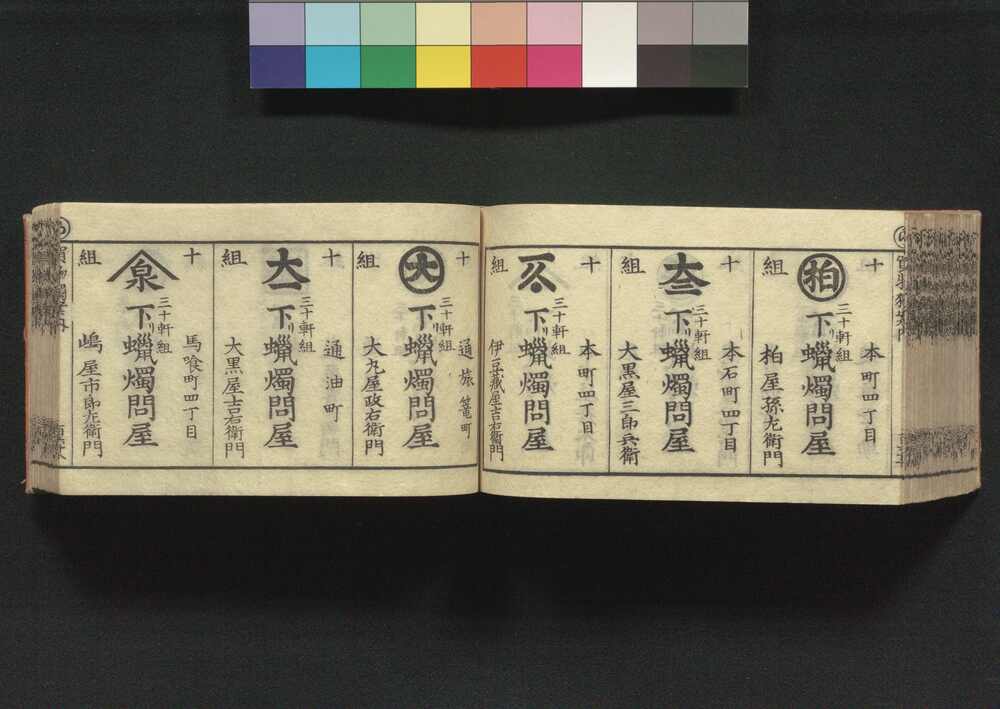 十組
拍
三十軒組
下リ蝋燭問屋
本町四丁目
柏屋孫左衛門
十組
三十軒組
下リ蝋燭問屋
本石町四丁目
大黒屋三郎兵衛
十組
三十軒組
下リ蝋燭問屋
本町四丁目
伊豆蔵屋吉右衛門
十組
大
三十軒組
下リ蝋燭問屋
通旅篭町
大丸屋政右衛門
十組
三十軒組
下リ蝋燭問屋
通油町
大黒屋吉右衛門
十組
泉
三十軒組
下リ蝋燭問屋
馬喰町四丁目
嶋屋市郎左衛門